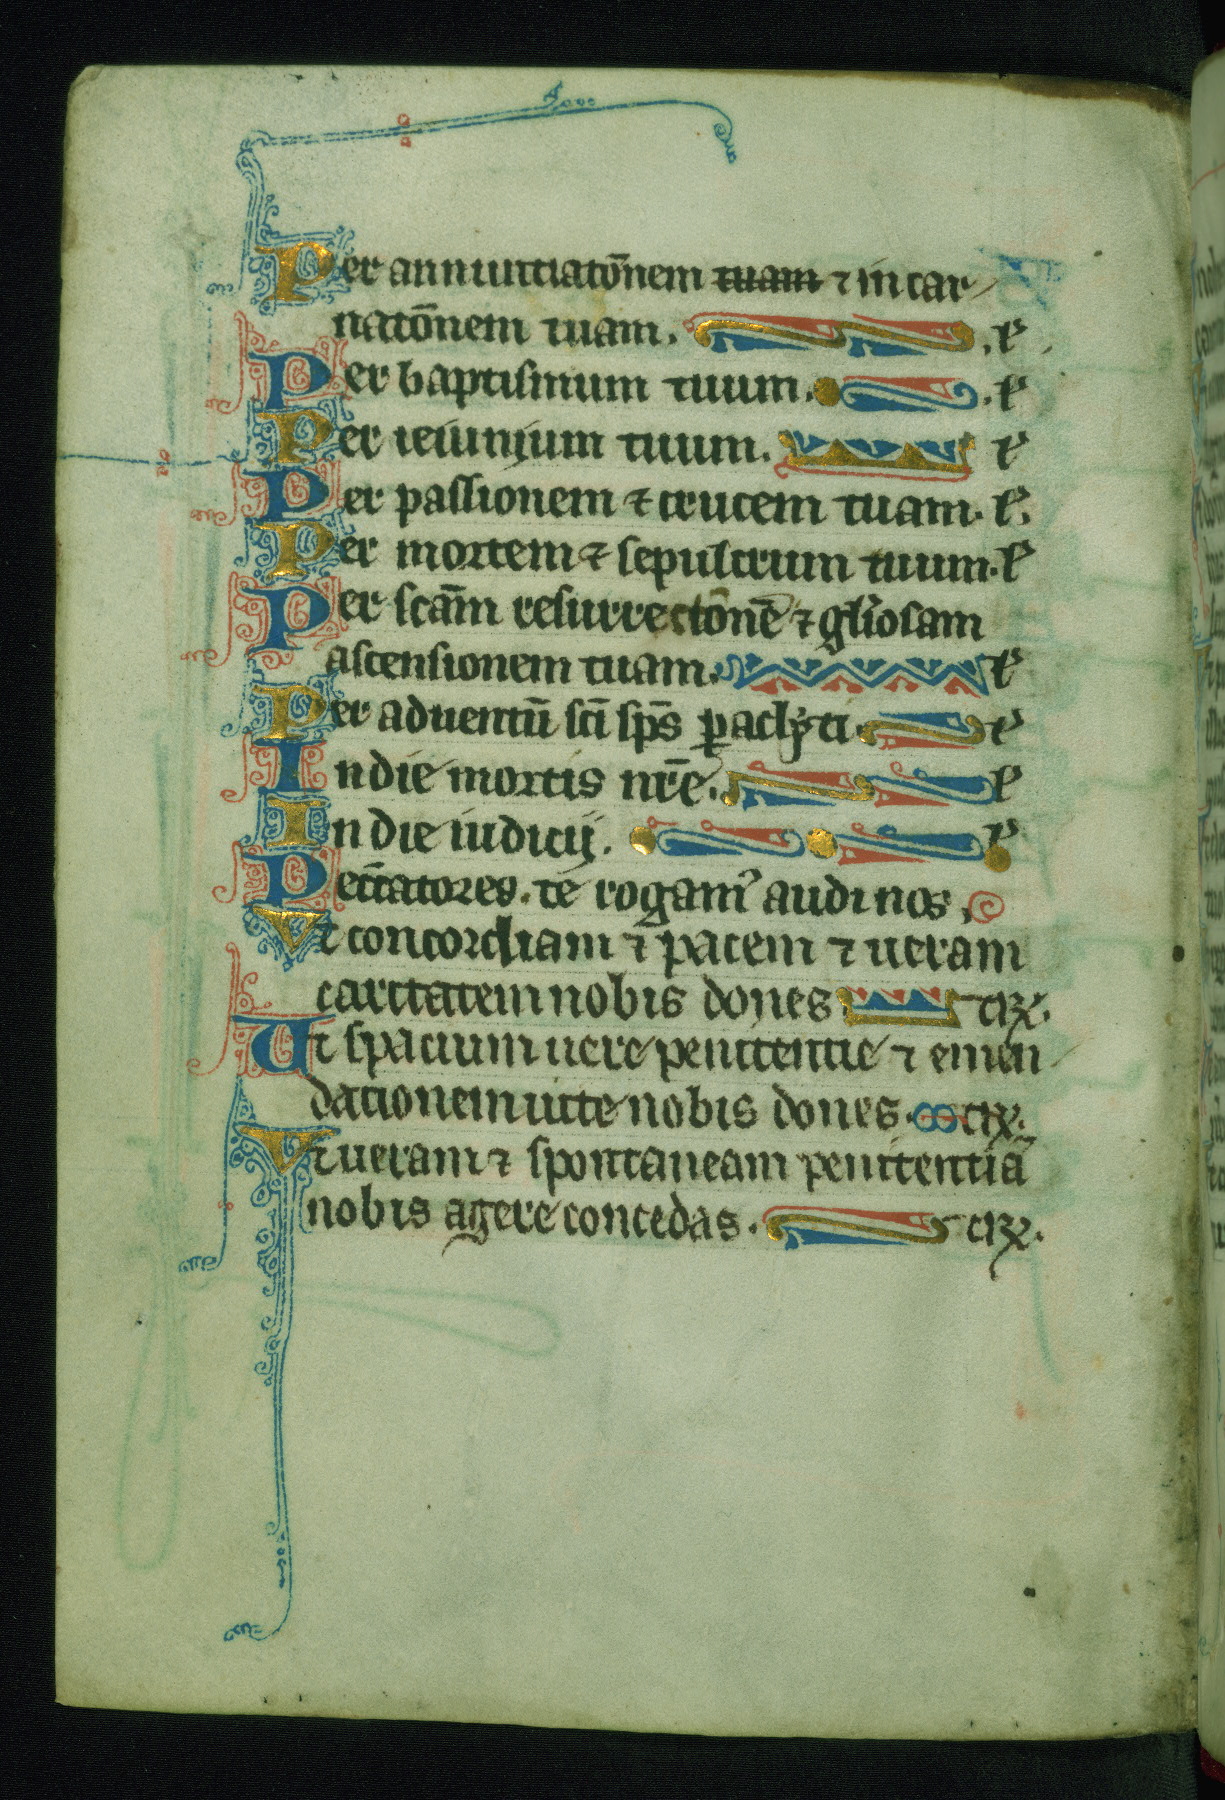 Per annuntiatōnem tuam ⁊ incar
natōnem tuam. .ł.
Per baptismum tuum. .ł
Per ieiunium tuum. ł
Per passionem ⁊ crucem tuam. ł.
Per mortem ⁊ sepulcrum tuum. ł
Per scām resurrectōnē ⁊ gl'iosam
ascensionem tuam. ł
Per aduentū sci sp̄s ꝑaclyti. ł
In die mortis nr̄e. ł
In die iudicij.
Peccatores. te rogam᾽ audi nos.
Vt concordiam ⁊ pacem ⁊ ueram
caritatem nobis dones
Ut spacium uere penitentie ⁊ emen
dationem uite nobis dones.
Vt ueram ⁊ spontaneam penitentiā
nobis agere concedas.